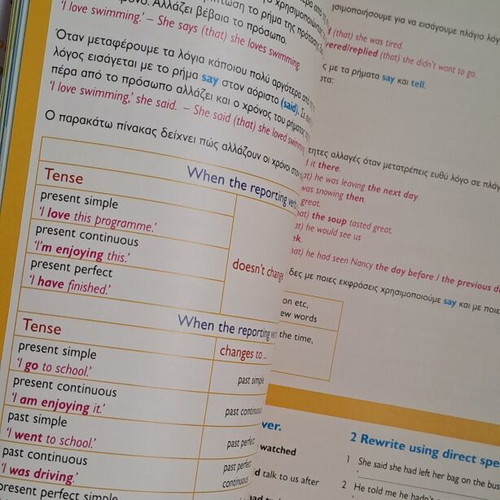 'I love swimming.' – She says (that) she loves swimming.
Όταν μεταφέρουμε τα λόγια κάποιου πολύ αργότερα από
λόγος εισάγεται με το ρήμα say στον αόριστο (said). Σε
πέρα από το πρόσωπο αλλάζει και ο χρόνος του ρήματος
'I love swimming,' she said. – She said (that) she loved swimming.
Ο παρακάτω πίνακας δείχνει πώς αλλάζουν οι χρόνοι στον
When the reporting verb
Tense
present simple
'I love this programme.'
present continuous
'I'm enjoying this.'
doesn't change
present perfect
'I have finished.'
When the reporting
Tense
changes to ...
present simple
'I go to school.'
past simple
present continuous
'I am enjoying it.'
past continuous
past simple
'I went to school.'
past perfect
past continuous
'I was driving.'
past perfect
continuous
present perfect simple
για να εισάγουμε πλάγιο λόγο
(that) she was tired.
replied (that) she didn't want to go.
με τα ρήματα say και tell.
αλλαγές όταν μετατρέπεις ευθύ λόγο σε
it there.
he was leaving the next day
was snowing then
great.
the soup tasted great.
he would see us
he had seen Nancy the day before / the previous
με ποιες εκφράσεις χρησιμοποιούμε say και με
on etc.
words
the time,
watched
talk to us after
2 Rewrite using direct
1 She said she had left her bag on the bus
2 He told me he